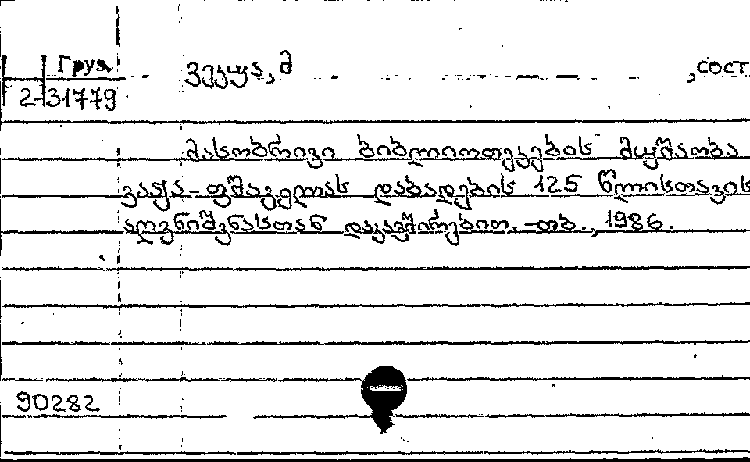 Груз
2-31779
, სост
მასობრივი ბიბლიოთეკების მუშაობა
ვაჟა-ფშაველას დაბადების 125 წლისთავის
აღვნიშვნასთან დაკავშირებით.-თბ., 1986.
90282